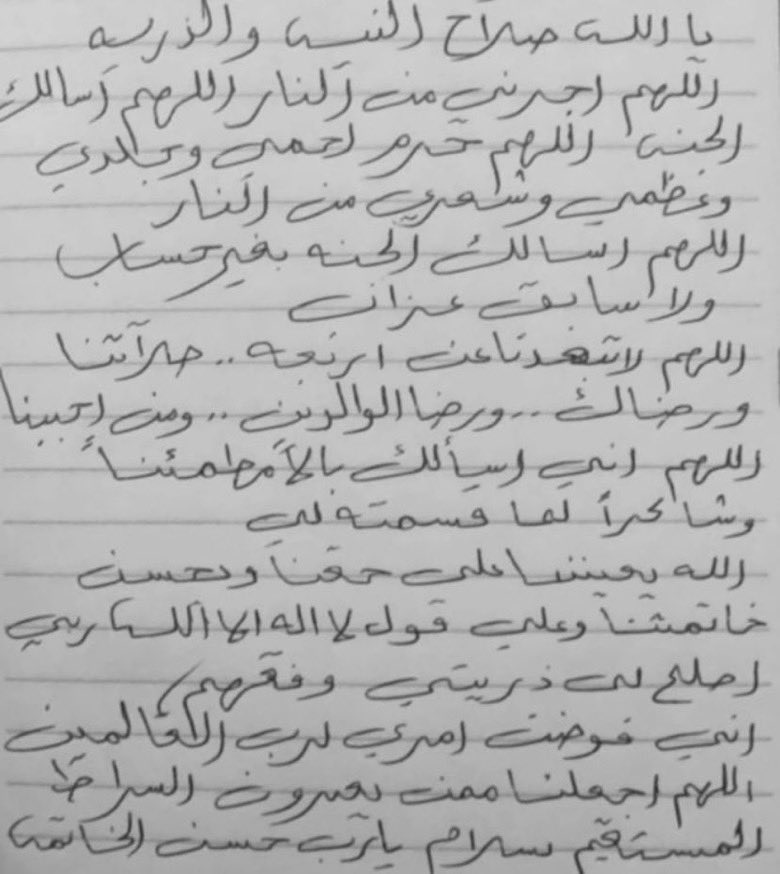 يا الله صلاح النيه والذريه
اللهم اجرني من النار اللهم أسالك
الجنه اللهم حرم لحمي وجلدي
وعظمي وشعري من النار
اللهم اسالك الجنه بغير حساب
ولا سابق عذاب
اللهم لاتبعدنا عن اربعه .. صلآتنا
ورضاك .. ورضا الوالدين .. ومن احببنا
اللهم اني اسألك بالاً مطمئناً
وشاكراً لما قسمته لي
الله يعيننا على حقنا ونحسن
خاتمتنا وعلى قول لا اله الا الله ربي
اصلح لي ذريتي وفقهم
اني فوضت امري لرب العالمين
اللهم اجعلنا ممن يعبرون السراط
المستقيم بسلام يارب حسن الخاتمه